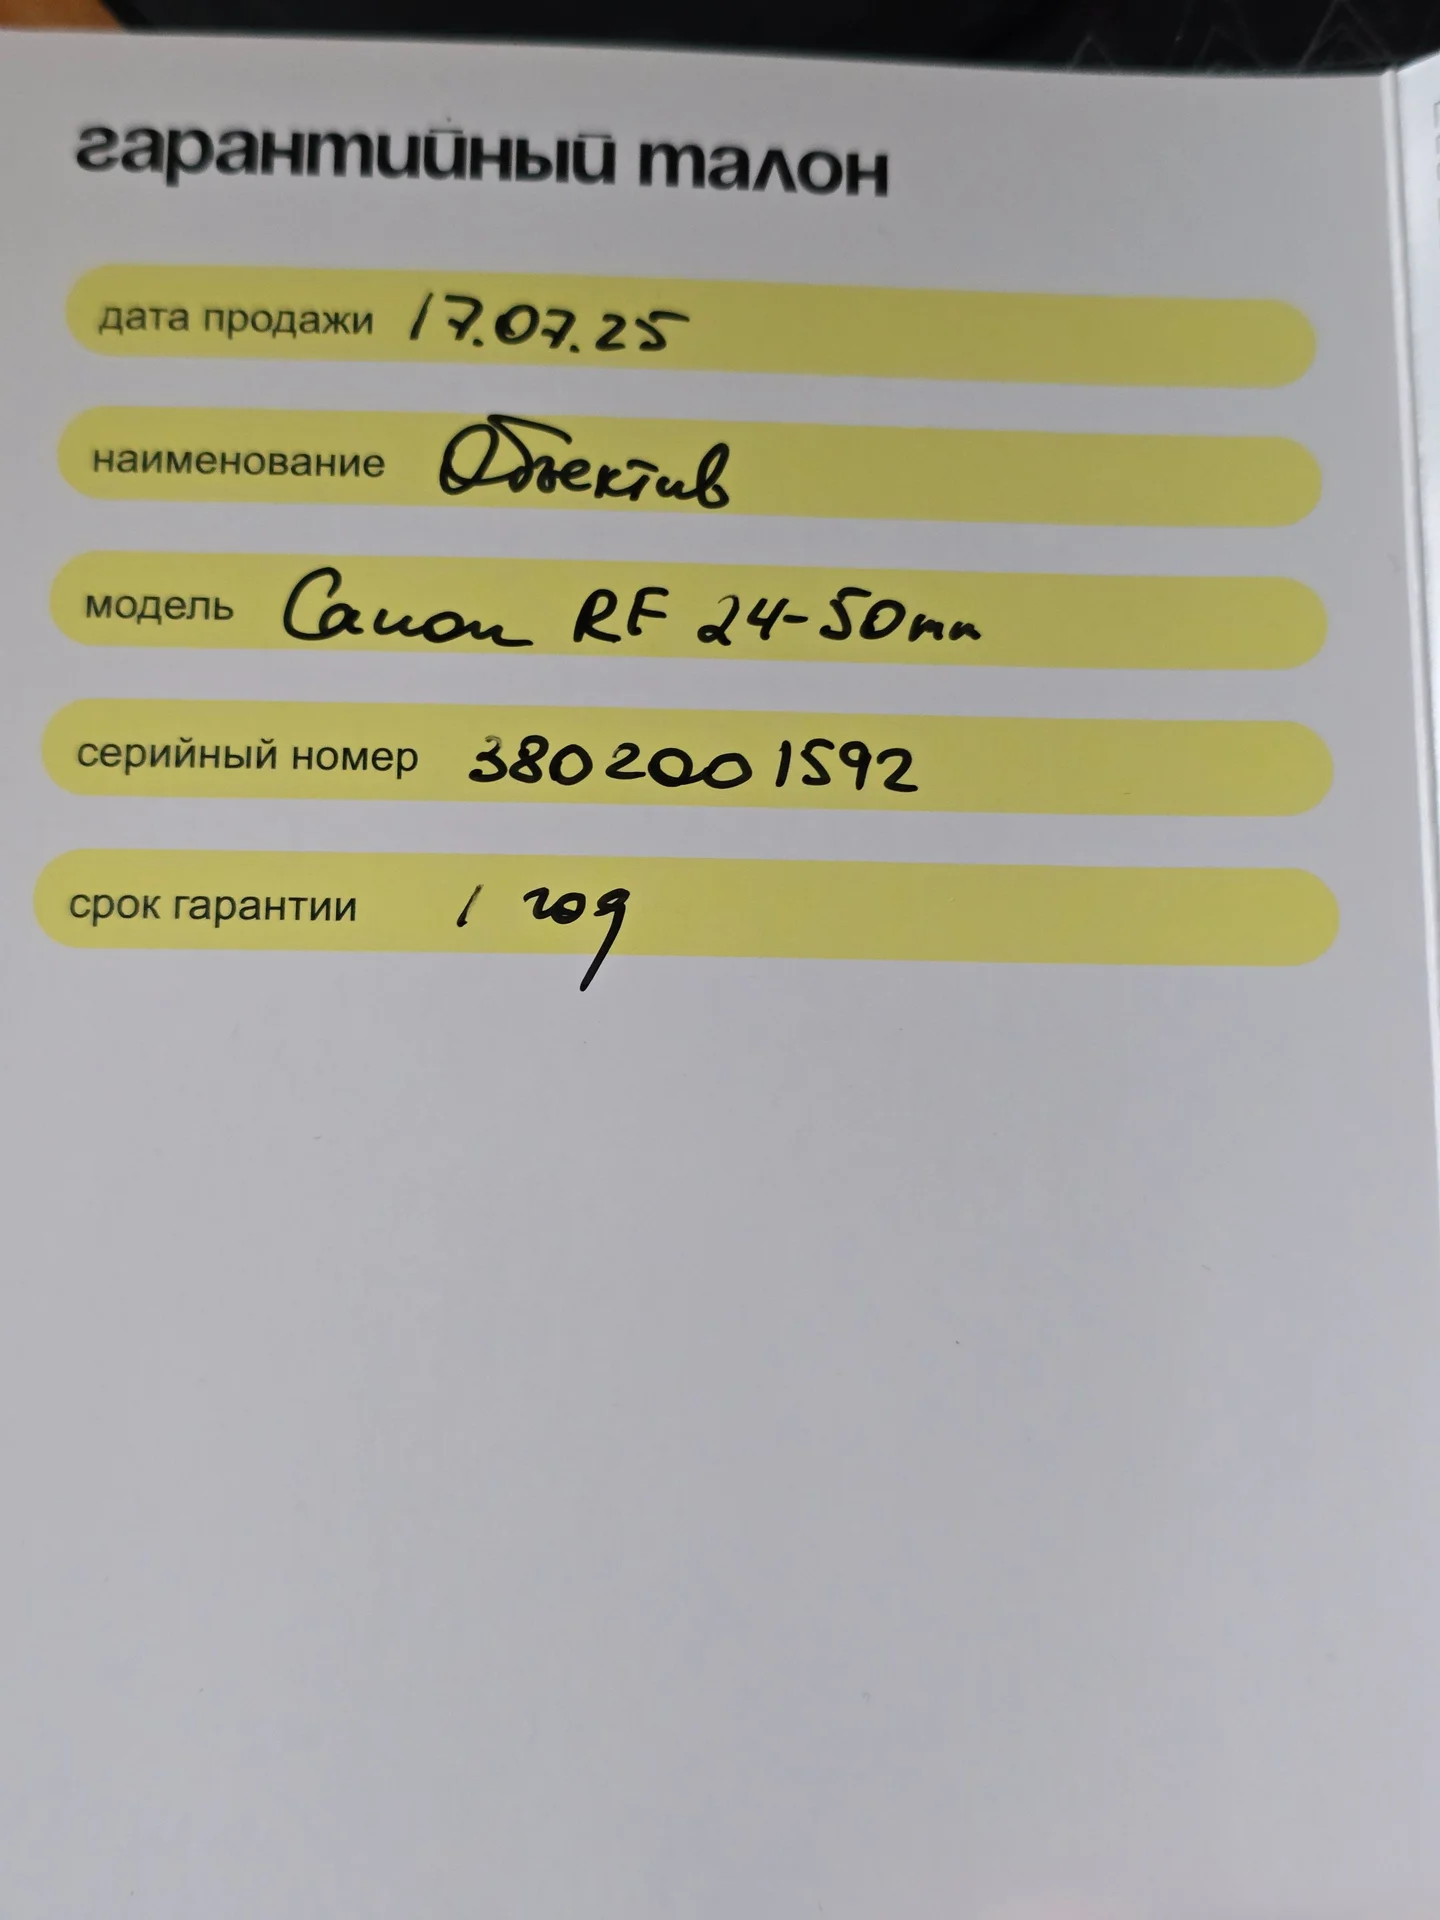 гарантийный талон
дата продажи 17.07.25
наименование Объектив
модель Canon RF 24-50mm
серийный номер 3802001592
срок гарантии 1 год